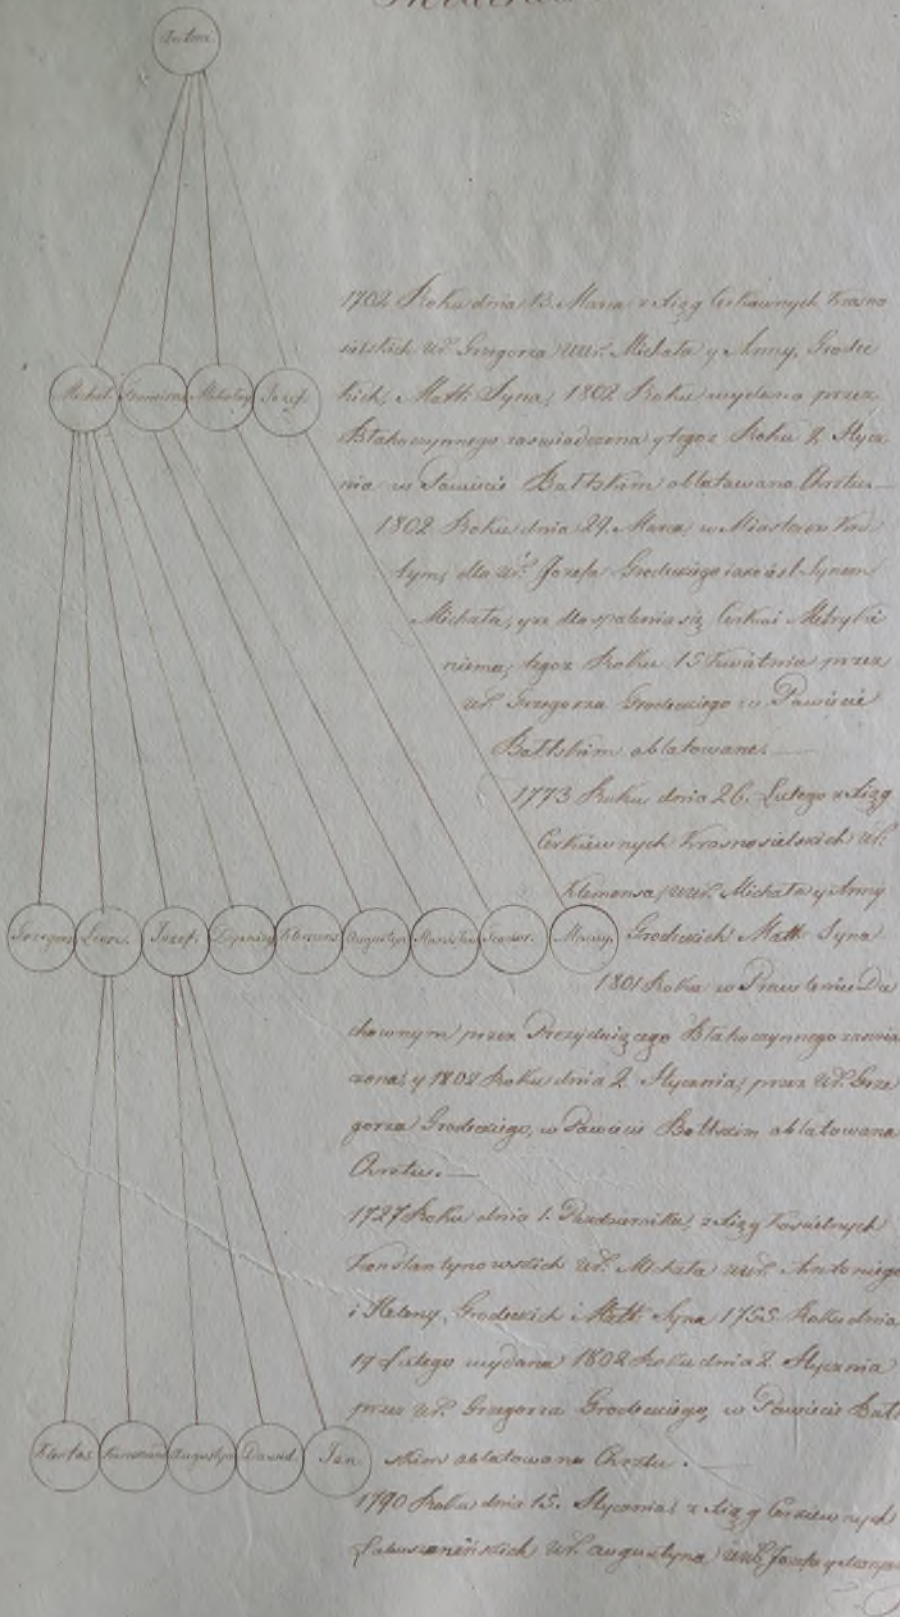 Antoni.
Michał. Mikołay Jozef.
Grzegorz Leon. Jozef. Ignacy Klemens Augustyn Stanisław Teodor. Maciey.
Augustyn Dawid. Jan
1702 Roku dnia 13. Marca z Xiąg Cerkiewnych Krasno
sielskich Ur. Grzegorza Uur. Michała y Anny, Grodec
kich, Małż: Syna; 1802 Roku wydana przez
Błahoczynnego zaswiadczona y tegoz Roku 2 Stycz
nia w Powiecie Bałtskim oblatowana Chrztu.—
1802 Roku dnia 29. Marca, w
dla Ur. Jozefa Grodeckiego iako iest Synem
Michała, y ze dla spalenia się Cerkwi Metryki
niema, tegoz Roku 15 Kwietnia przez
Ur. Grzegorza Grodeckiego w Powiecie
Bałtskim oblatowane.—
1773 Roku dnia 26. Lutego z Xiąg
Cerkiewnych Krasnosielskich Ur.
Klemensa, Uur. Michała y Anny
Grodeckich Małż: Syna
1801 Roku w Prawleniu Du
chownym przez Prezyduiącego Błahoczynnego zaswia
czona, y 1802 Roku dnia 2 Stycznia, przez Ur. Grze
gorza Grodeckiego, w Powiecie Bałtskim oblatowana
Chrztu.—
1727 Roku dnia 1. Pazdziernika, z Xiąg Koscielnych
Konstantynowskich Ur. Michała Uur. Antoniego
i Heleny, Grodeckich Małż: Syna 1755 Roku dnia
19 Lutego wydana 1802 Roku dnia 2. Stycznia
przez Ur. Grzegorza Grodeckiego, w Powiecie Bałt
skim oblatowana Chrztu.—
1790 Roku dnia 15. Stycznia z Xiąg Cerkiewnych
Ur. Augustyna Uur. Jozefa y